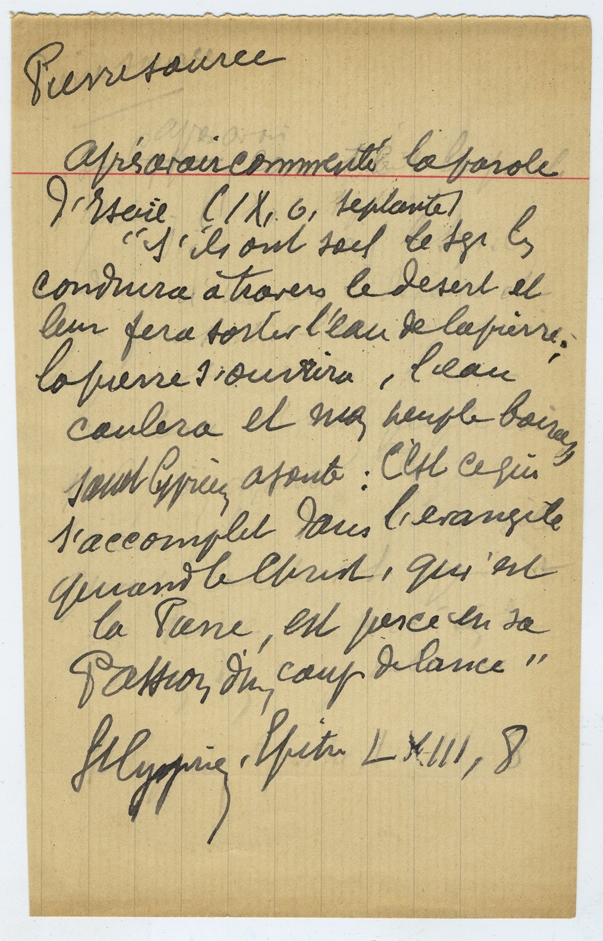 Pierre source
Après avoir commenté la parole
d'Esaïe (IX, 6, septante)
"S'ils ont soif le Sgr les
conduira à travers le désert et
leur fera sortir l'eau de la pierre ;
la pierre s'ouvrira, l'eau
coulera et mon peuple boira"
saint Cyprien ajoute : C'est ce qui
s'accomplit dans l'évangile
quand le Christ, qui est
la Pierre, est percé en sa
Passion d'un coup de lance"
St Cyprien, Epitre LXIII, 8